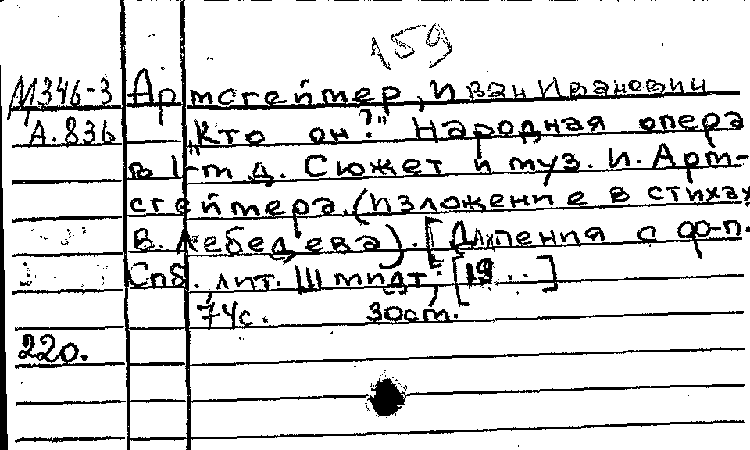 159
М346-3 Артсгеймер, Иван Иванович
А.836 „Кто он?" Народная опера
в 1-т д. Сюжет и муз. И. Арт-
сгеймера. (Изложение в стихах
В. Лебедева). [Для пения с ф-п.
Спб. лит. Шмидт, [19..]
74с. 30ст.
220.